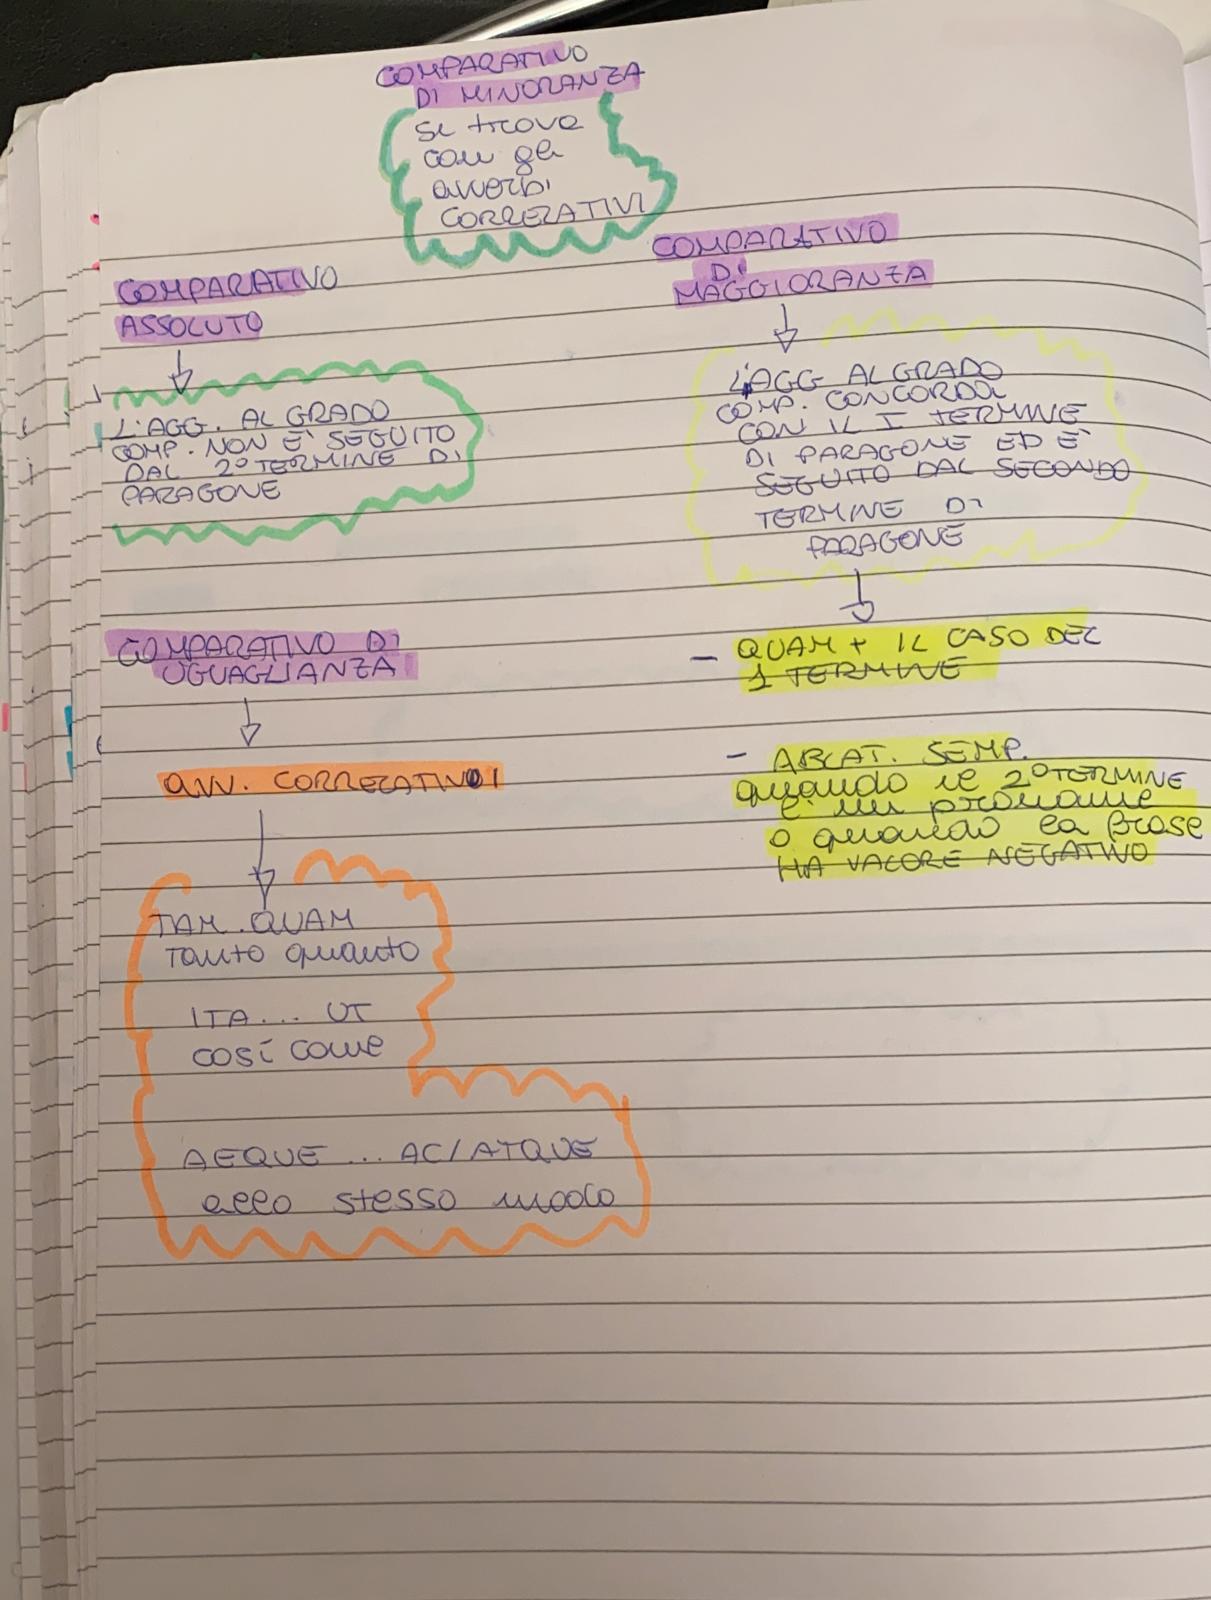 COMPARATIVO
DI MINORANZA
si trova
con gli
avverbi
CORRELATIVI
COMPARATIVO
ASSOLUTO
L'AGG. AL GRADO
COMP. NON È SEGUITO
DAL 2° TERMINE DI
PARAGONE
COMPARATIVO DI
UGUAGLIANZA
AVV. CORRELATIVI
TAM..QUAM
Tanto quanto
ITA... UT
così come
AEQUE ... AC/ATQUE
allo stesso modo
COMPARATIVO
DI
MAGGIORANZA
L'AGG AL GRADO
COMP. CONCORDA
CON IL I TERMINE
DI PARAGONE ED È
SEGUITO DAL SECONDO
TERMINE DI
PARAGONE
- QUAM + IL CASO DEL
1 TERMINE
- ABLAT. SEMP.
quando il 2° TERMINE
è un pronome
o quando la frase
HA VALORE NEGATIVO